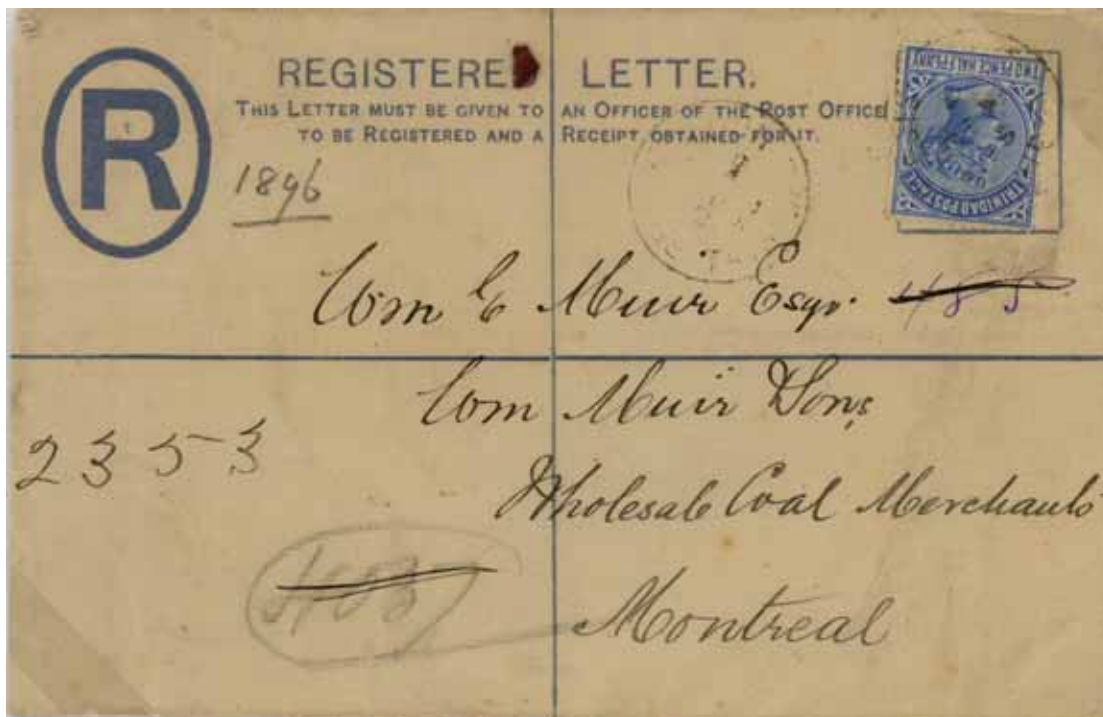 R
REGISTERED LETTER.
THIS LETTER MUST BE GIVEN TO AN OFFICER OF THE POST OFFICE
TO BE REGISTERED AND A RECEIPT OBTAINED FOR IT.
TWO PENCE HALFPENNY
TRINIDAD POSTAGE
1896
Wm G Muir Esqr.
Wm Muir Sons
Wholesale Coal Merchants
2353
Montreal